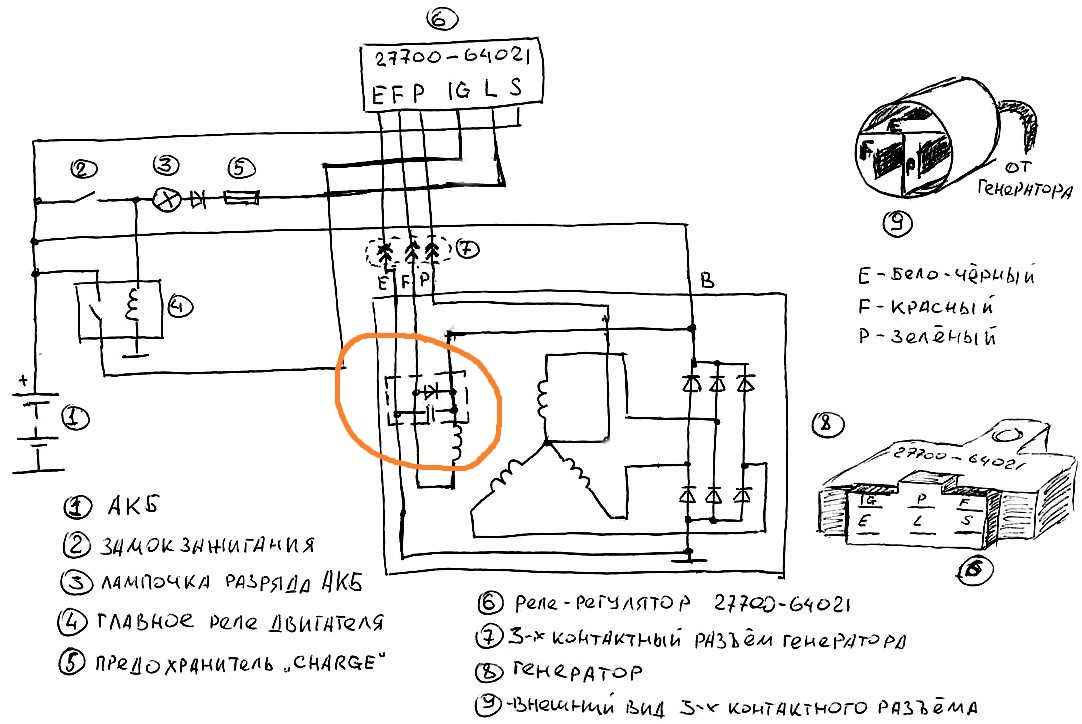 6
27700-64021
E F P IG L S
2
3
5
E
F
P
ОТ
ГЕНЕРАТОРА
9
7
E F P
B
E - БЕЛО-ЧЁРНЫЙ
F - КРАСНЫЙ
P - ЗЕЛЁНЫЙ
4
+
1
8
27700-64021
IG P F
E L S
6
1 АКБ
2 ЗАМОК ЗАЖИГАНИЯ
3 ЛАМПОЧКА РАЗРЯДА АКБ
4 ГЛАВНОЕ РЕЛЕ ДВИГАТЕЛЯ
5 ПРЕДОХРАНИТЕЛЬ „CHARGE"
6 РЕЛЕ-РЕГУЛЯТОР 27700-64021
7 3-Х КОНТАКТНЫЙ РАЗЪЁМ ГЕНЕРАТОРА
8 ГЕНЕРАТОР
9 -ВНЕШНИЙ ВИД 3-Х КОНТАКТНОГО РАЗЪЁМА